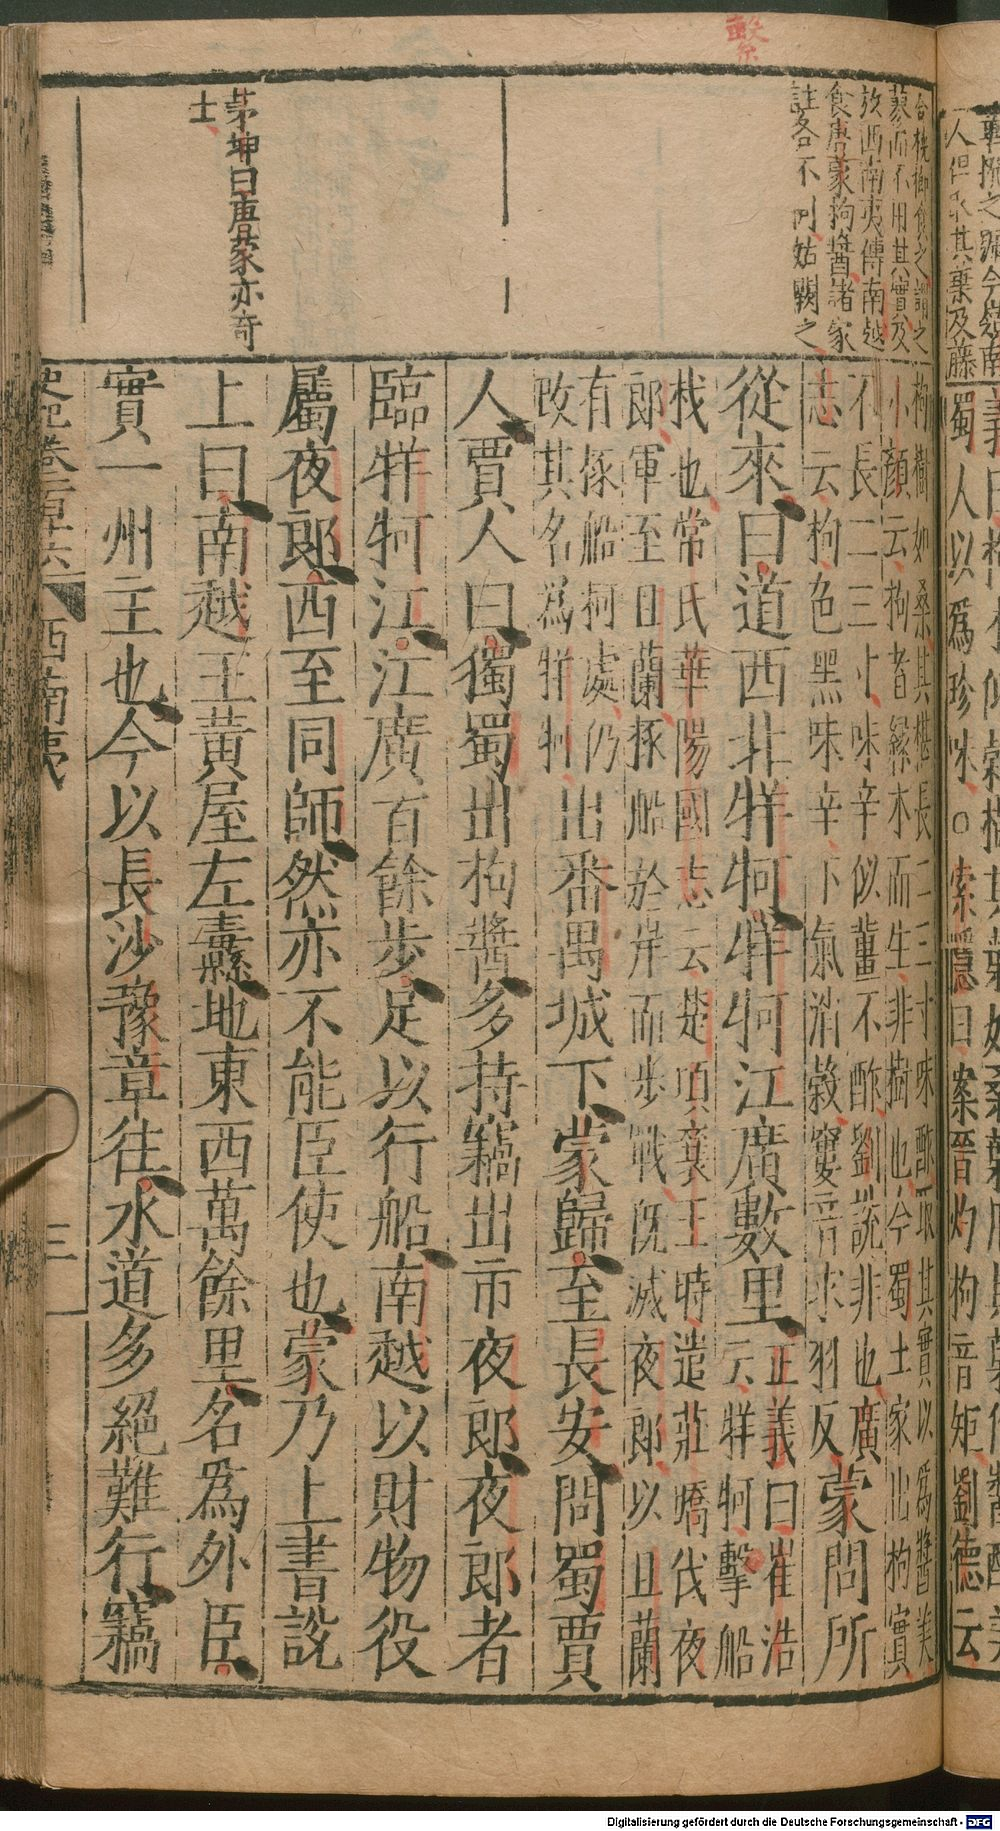 繫
合檳榔食之謂之
蒟而不用其實及
攷西南夷傳南越
食唐蒙拘醬諸家
註各不同姑闕之
茅坤曰唐蒙亦奇
士
蜀人以爲珍味○索隱曰案晉灼拘音矩劉德云
拘樹如桑其椹長二三寸味酢取其實以爲醬美
小顏云拘者緣木而生非樹也今蜀土家出拘實
不長二三寸味辛似薑不酢劉說非也廣
志云拘色黑味辛下氣消穀窶音求羽反蒙問所
從來曰道西北牂牁牂牁江廣數里正義曰崔浩
云牂牁擊船
杙也常氏華陽國志云楚頃襄王時遣莊蹻伐夜
郎軍至且蘭椓船於岸而步戰旣滅夜郎以且蘭
有椓船柯處仍
改其名爲牂牁出番禺城下蒙歸至長安問蜀賈
人賈人曰獨蜀出拘醬多持竊出市夜郎夜郎者
臨牂牁江江廣百餘步足以行船南越以財物役
屬夜郎西至同師然亦不能臣使也蒙乃上書說
上曰南越王黃屋左纛地東西萬餘里名爲外臣
實一州主也今以長沙豫章往水道多絕難行竊
史記卷一百十六 西南夷 三
Digitalisierung gefördert durch die Deutsche Forschungsgemeinschaft - DFG